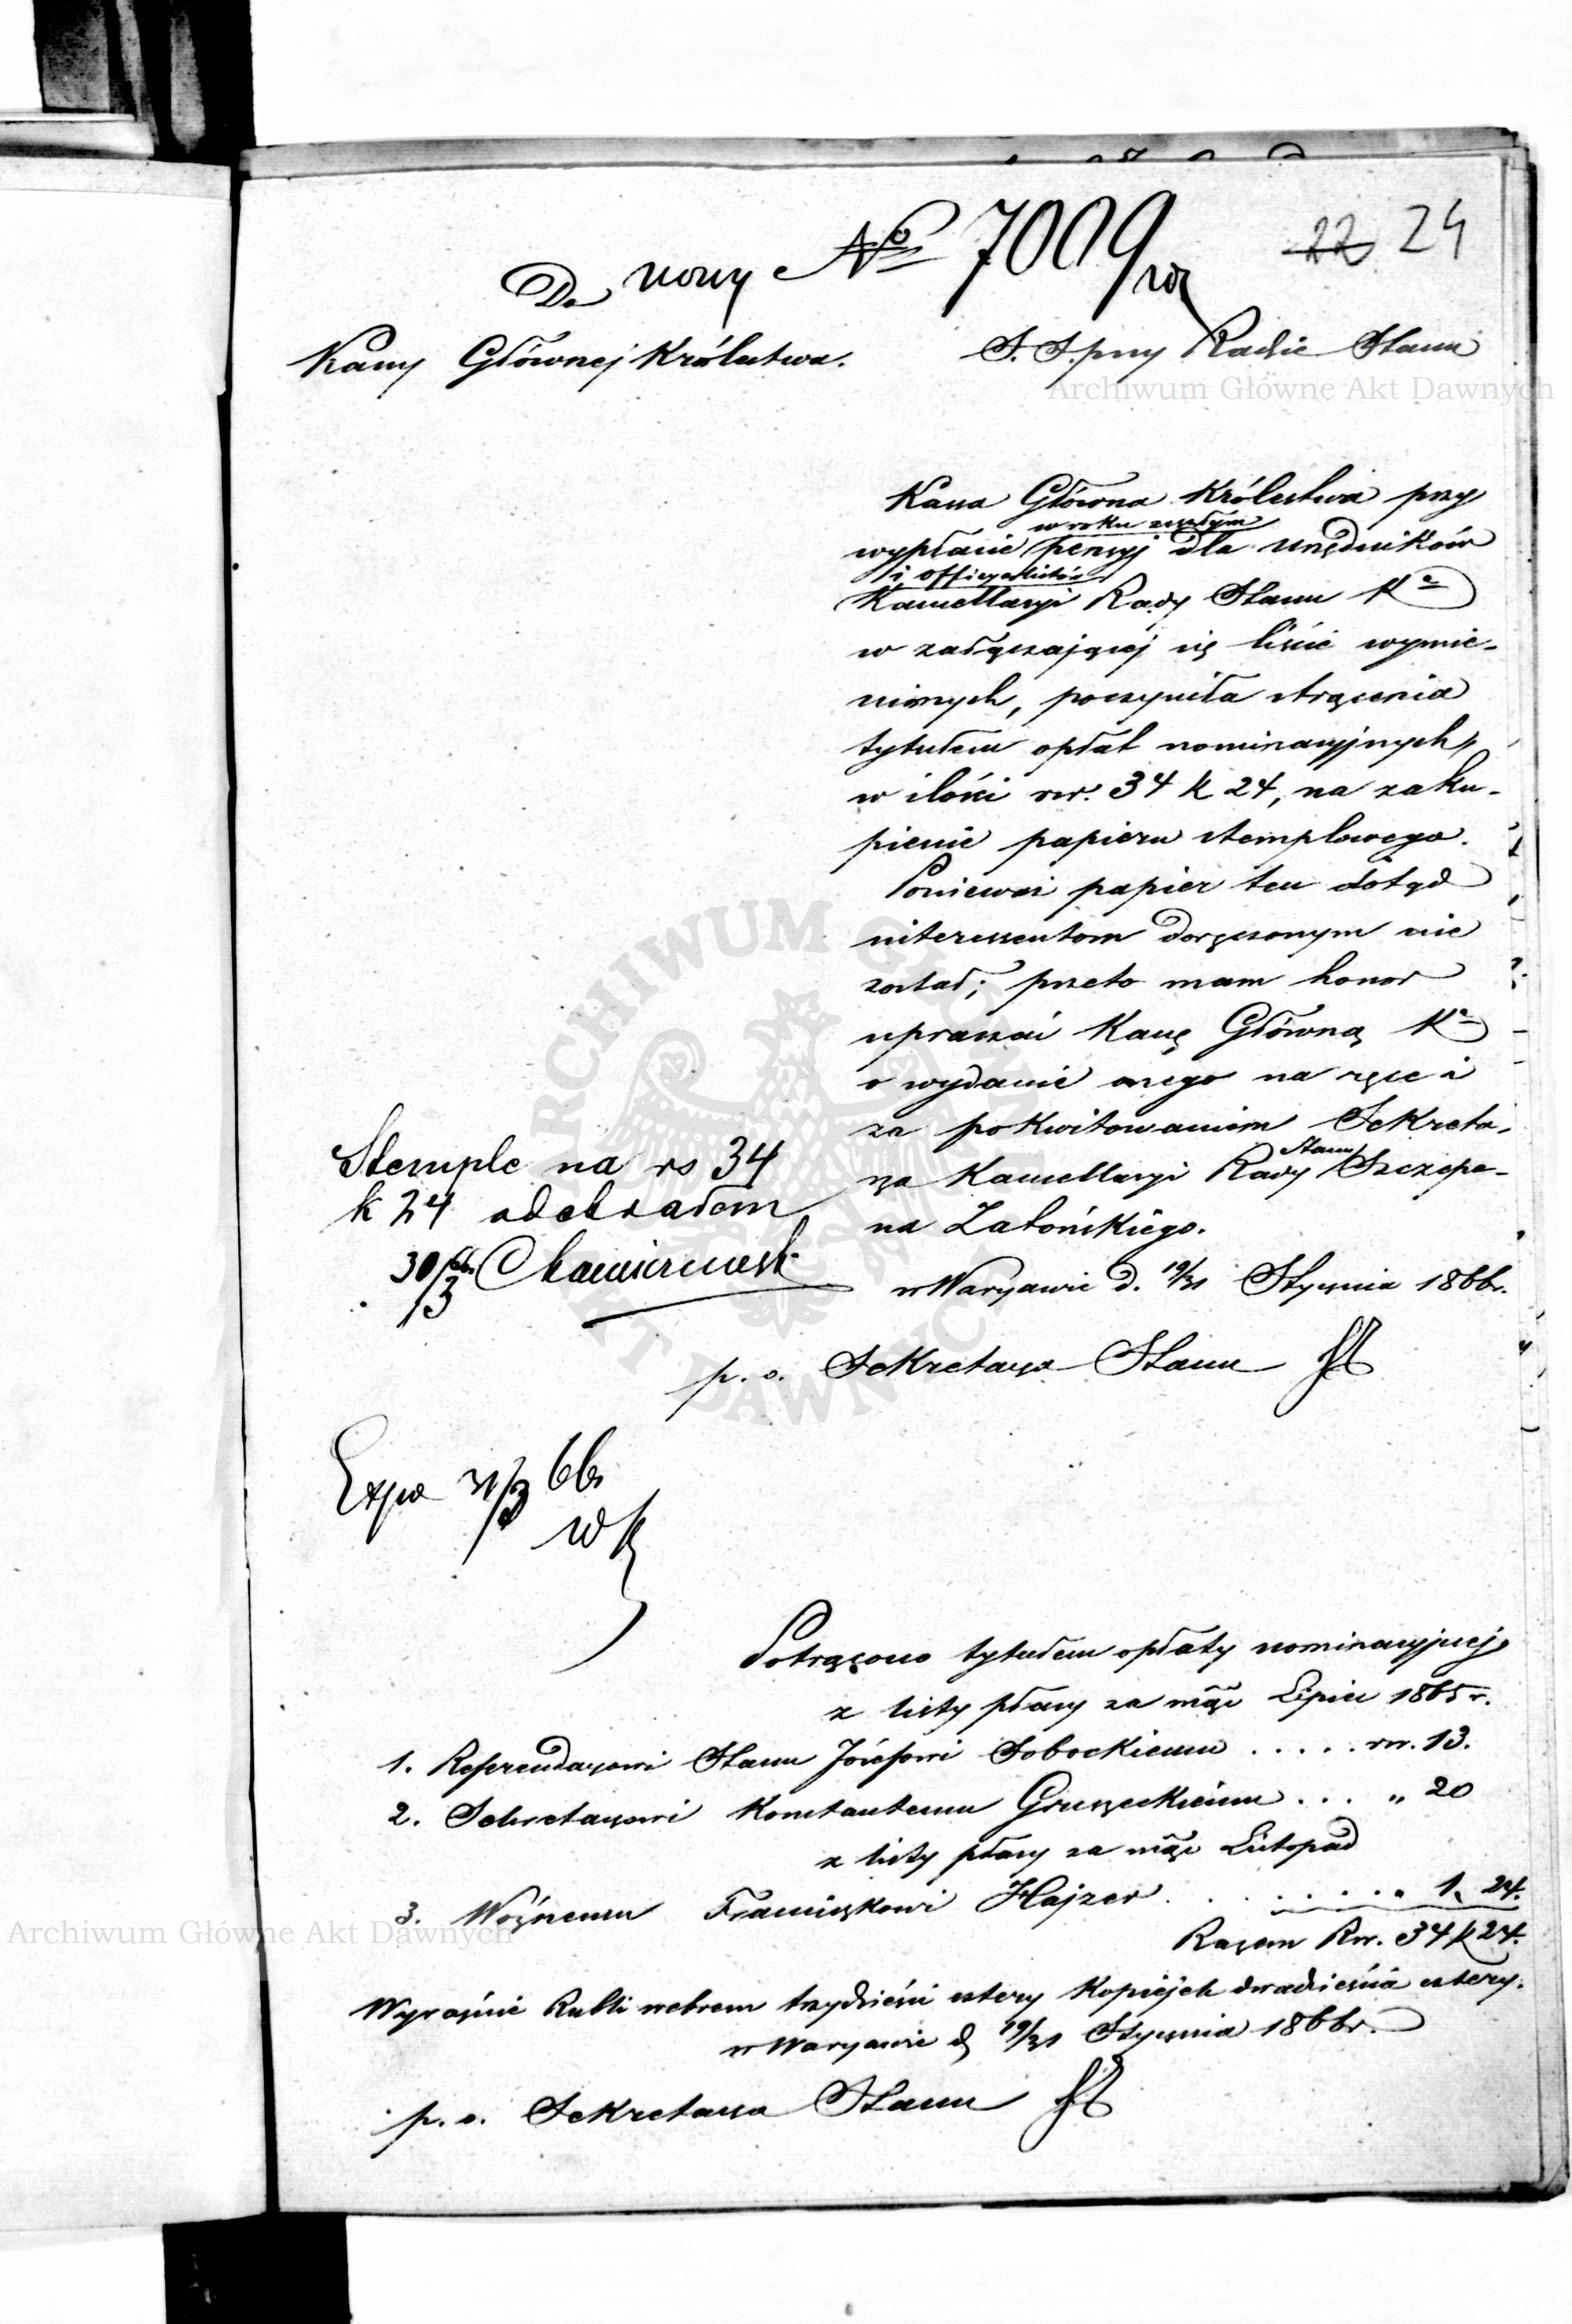 22 24
Do nowy No 7009
Kassy Głównej Królestwa.
S. S. przy Radzie Stanu
Archiwum Główne Akt Dawnych
Kassa Główna Królestwa przy
w roku zeszłym
wypłacie pensyj dla urzędników
i officyalistów
Kancellaryi Rady Stanu Kr
w załączającej się liście wymie-
nionych, poczyniła strącenia
tytułem opłat nominacyjnych
w ilości rsr. 34 k 24, na zaku-
pienie papieru stemplowego.
Ponieważ papier ten dotąd
interessentom doręczonym nie
został; przeto mam honor
upraszać Kassę Główną Kr
o wydanie onego na ręce i
za pokwitowaniem Sekreta-
Stanu
rza Kancellaryi Rady Szczepa-
na Zatońskiego.
w Warszawie d. 19/31 Stycznia 1866 r.
p. o. Sekretarza Stanu
Stemple na rs 34
k 24 odebrałem
30/3 66
Exp 31/3 66
ARCHIWUM GŁÓWNE AKT DAWNYCH
Potrącono tytułem opłaty nominacyjnej
z listy płacy za msc Lipiec 1865 r.
1. Referendarzowi Stanu Józefowi Sobockiemu ..... rsr. 13.
2. Sekretarzowi Konstantemu Gruszeckiemu ... „ 20
z listy płacy za msc Listopad
3. Woźnemu Franciszkowi Hajzer ........ „ 1. 24.
Archiwum Główne Akt Dawnych
Razem Rsr. 34 k 24.
Wyraźnie Rubli srebrem trzydzieści cztery Kopiejek dwadzieścia cztery.
w Warszawie d 19/31 Stycznia 1866 r.
p. o. Sekretarza Stanu